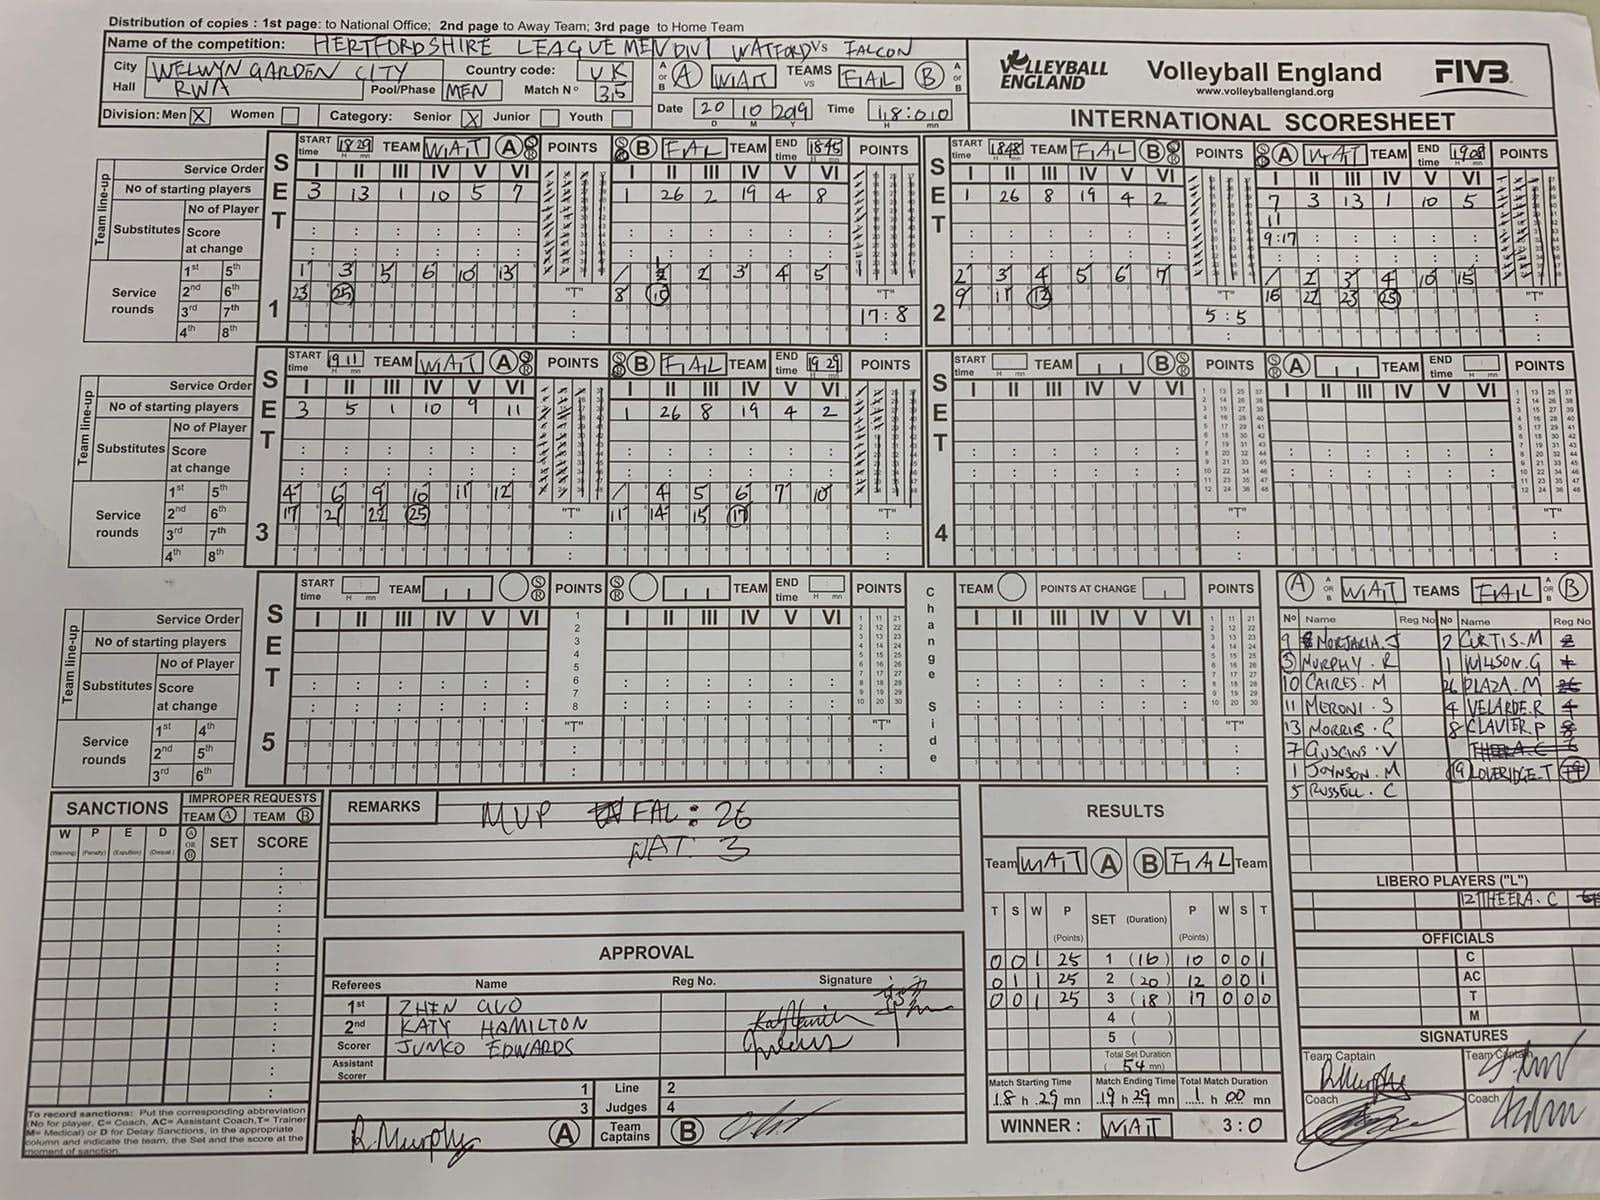 Distribution of copies : 1st page: to National Office; 2nd page to Away Team; 3rd page to Home Team
Name of the competition: HERTFORDSHIRE LEAGUE MEN DIV1 WATFORD VS FALCON
City WELWYN GARDEN CITY Country code: UK
Hall RWA Pool/Phase MEN Match Nº 35
A or B A WAT TEAMS vs FAL B A or B
Date 20 10 2019 Time 18:00
D M Y H mn
Division: Men X Women Category: Senior X Junior Youth
VOLLEYBALL ENGLAND
Volleyball England
www.volleyballengland.org
FIVB
INTERNATIONAL SCORESHEET
SET 1
START time 18 29 TEAM WAT A S R POINTS S R B FAL TEAM END time 18 45 POINTS
Service Order I II III IV V VI I II III IV V VI
Team line-up
No of starting players 3 13 1 10 5 7 1 26 2 19 4 8
Substitutes No of Player
Score at change
Service rounds
1st 5th 1 3 5 6 10 13 2 3 4 5
2nd 6th 23 25 8 10
3rd 7th
4th 8th
"T" "T"
17:8
SET 2
START time 18 48 TEAM FAL B S R POINTS S R A WAT TEAM END time 19 08 POINTS
I II III IV V VI I II III IV V VI
1 26 8 19 4 2 7 3 13 1 10 5
11
9:17
2 3 4 5 6 7 1 2 3 4 10 15
9 11 12 16 22 23 25
"T" "T"
5:5
SET 3
START time 19 11 TEAM WAT A S R POINTS S R B FAL TEAM END time 19 29 POINTS
Service Order I II III IV V VI I II III IV V VI
Team line-up
No of starting players 3 5 1 10 9 11 1 26 8 19 4 2
Substitutes No of Player
Score at change
Service rounds
1st 5th 4 6 9 10 11 12 4 5 6 7 10
2nd 6th 17 21 22 25 11 14 15 17
3rd 7th
4th 8th
"T" "T"
SET 4
START time TEAM B S R POINTS S R A TEAM END time POINTS
I II III IV V VI I II III IV V VI
"T" "T"
SET 5
START time TEAM S R POINTS S R TEAM END time POINTS
Change Side
TEAM POINTS AT CHANGE POINTS
Service Order I II III IV V VI I II III IV V VI I II III IV V VI
Team line-up
No of starting players
Substitutes No of Player
Score at change
Service rounds
1st 4th
2nd 5th
3rd 6th
"T" "T" "T"
A A OR B WAT TEAMS FAL A OR B B
Nº Name Reg No Nº Name Reg No
9 MORJARIA.J 2 CURTIS.M
3 MURPHY.R 1 WILSON.G
10 CAIRES.M 26 PLAZA.M
11 MERONI.S 4 VELARDE.R
13 MORRIS.G 8 CLAVIER.P
7 GUSCINS.V
1 JOYNSON.M 19 LOVERIDGE-T
5 RUSSELL.C
LIBERO PLAYERS ("L")
12 THEERA.C
OFFICIALS
C
AC
T
M
SIGNATURES
Team Captain Team Captain
R Murphy
Coach Coach
SANCTIONS
IMPROPER REQUESTS
TEAM A TEAM B
W P E D A OR B SET SCORE
(Warning) (Penalty) (Expulsion) (Disqual.)
To record sanctions: Put the corresponding abbreviation
(No for player, C= Coach, AC= Assistant Coach,T= Trainer
M= Medical) or D for Delay Sanctions, in the appropriate
column and indicate the team, the Set and the score at the
moment of sanction.
REMARKS
MVP FAL: 26
WAT: 3
APPROVAL
Referees Name Reg No. Signature
1st ZHEN GUO
2nd KATY HAMILTON
Scorer JUNKO EDWARDS
Assistant Scorer
1 Line 2
3 Judges 4
R Murphy A Team Captains B
RESULTS
Team WAT A B FAL Team
T S W P (Points) SET (Duration) P (Points) W S T
0 0 1 25 1 (16) 10 0 0 1
0 1 1 25 2 (20) 12 0 0 1
0 0 1 25 3 (18) 17 0 0 0
4 ( )
5 ( )
Total Set Duration
( 54 mn)
Match Starting Time Match Ending Time Total Match Duration
18 h 29 mn 19 h 29 mn 1 h 00 mn
WINNER : WAT 3:0